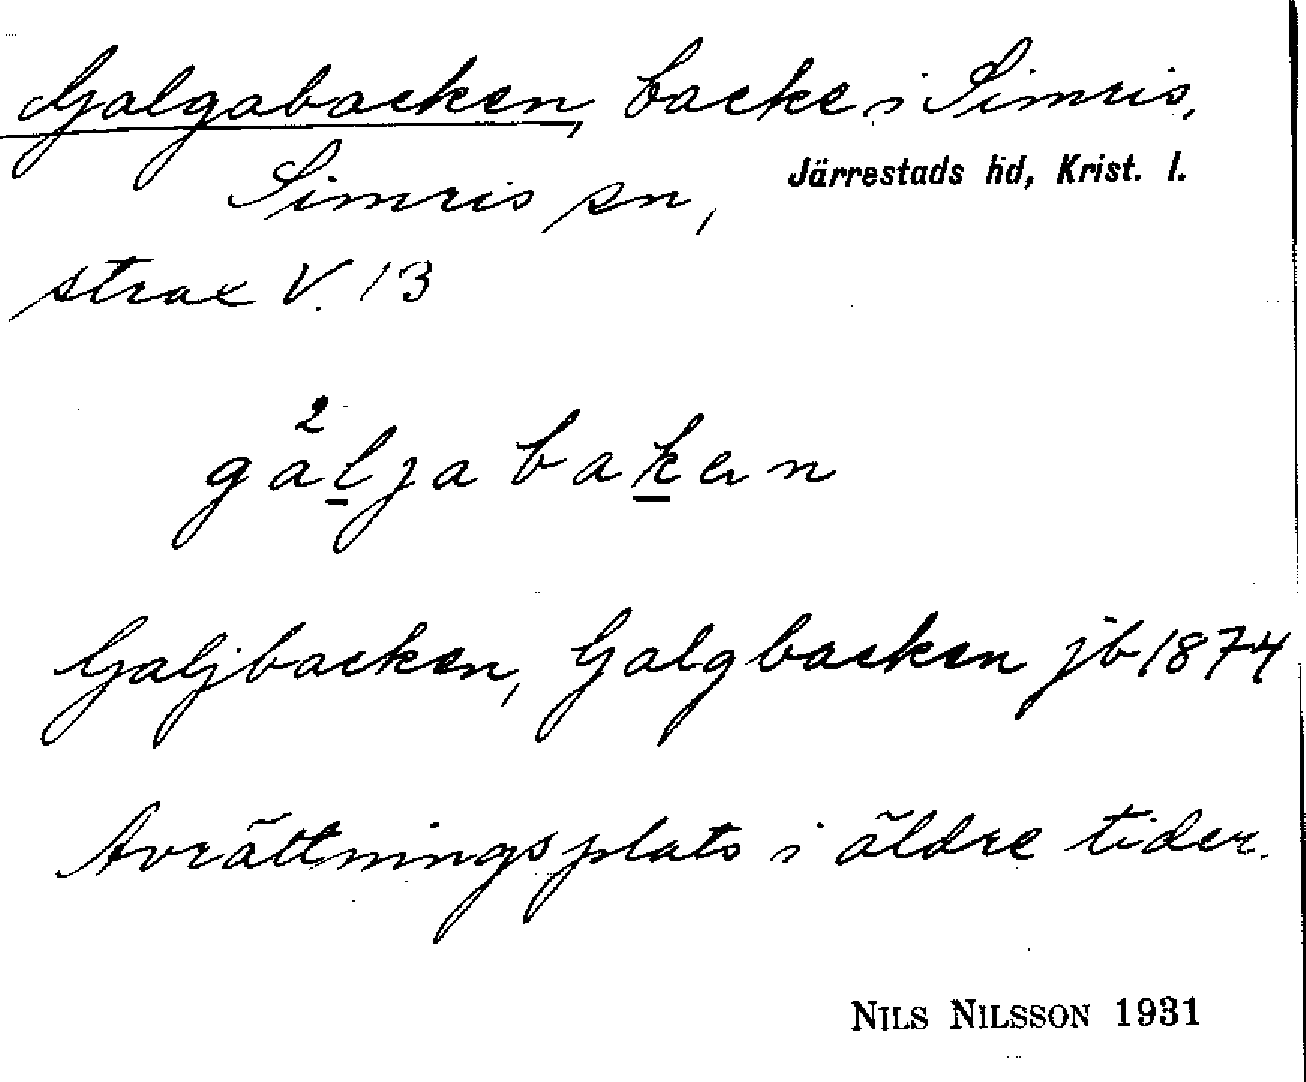 Galgabacken, backe i Simris,
Simris sn, Järrestads hd, Krist. l.
strax V. 13
ga²ljabakan
Galjbacken, Galgbacken jb 1874
Avrättningsplats i äldre tider.
NILS NILSSON 1931